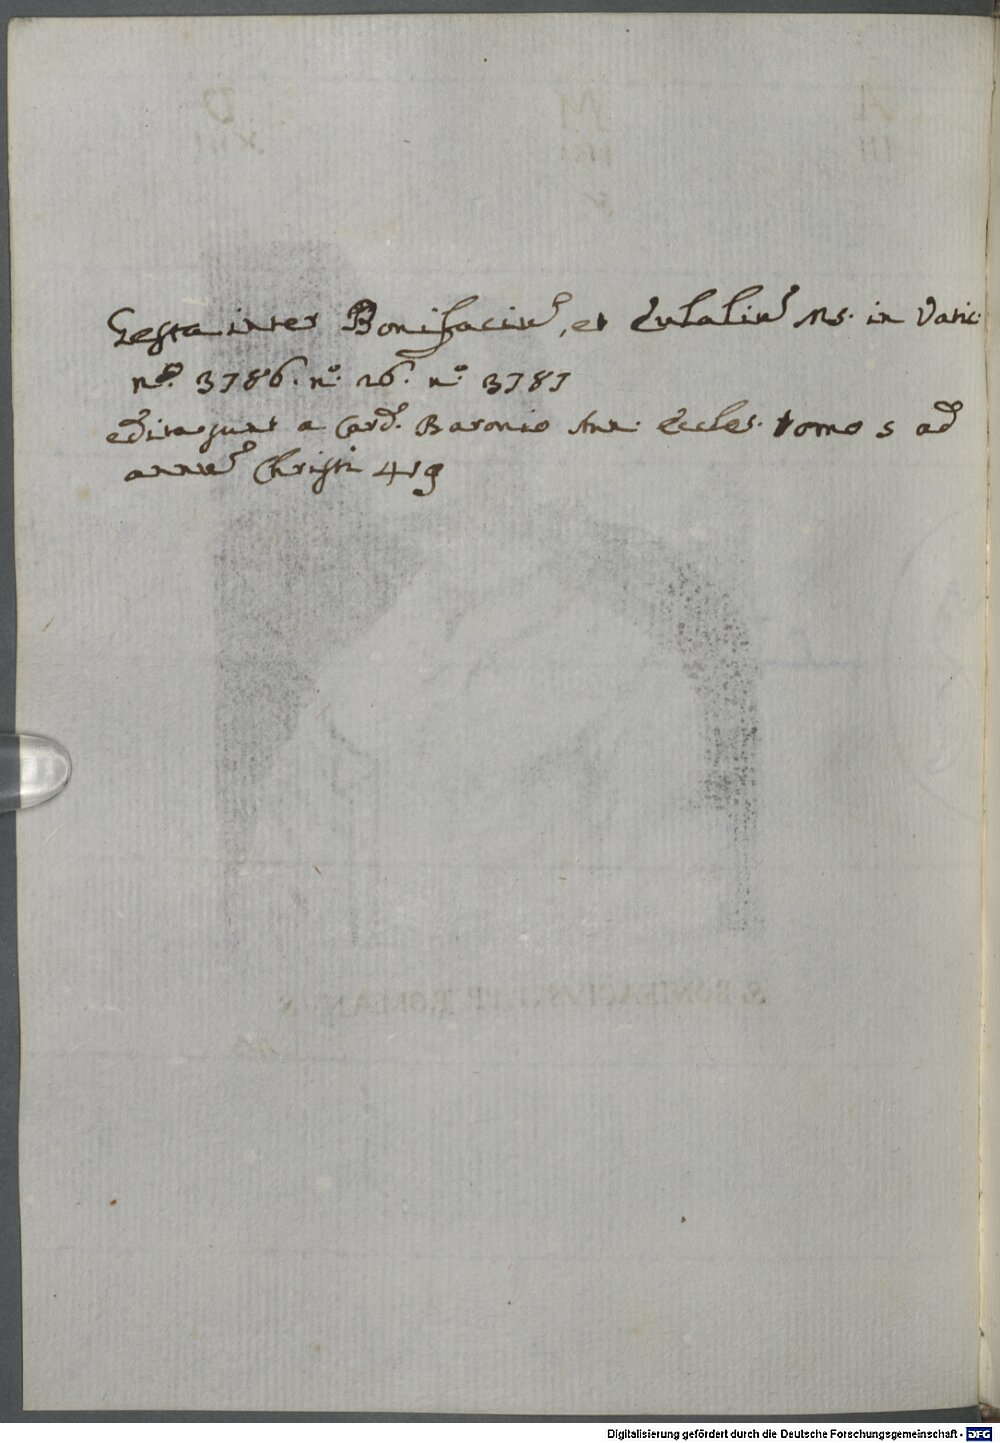 Gesta inter Bonifaciū, et Eulaliū Ms. in Vatic.
nº. 3786. nº. 26. nº. 3787
edita sunt a Card. Baronio Ann. Eccles. tomo 5 ad
annū Christi 419
S. BONIFACIVS I. PP. ROMANVS
Digitalisierung gefördert durch die Deutsche Forschungsgemeinschaft - DFG